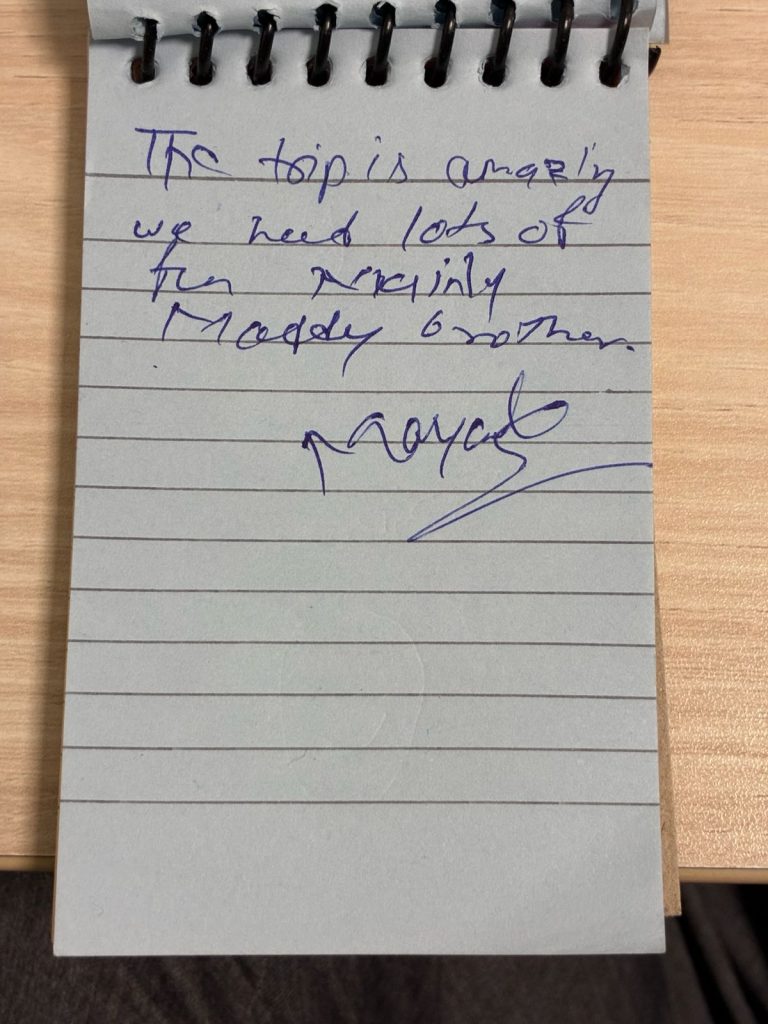 The trip is amazing
we need lots of
fun mainly
Maddy brother.